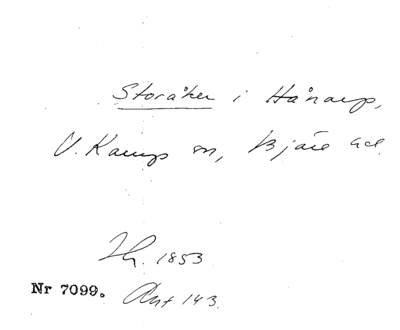 Storåker i Hånarp,
V. Karup sn, Bjäre hd.
Th. 1853
Nr 7099. Ant. 143.